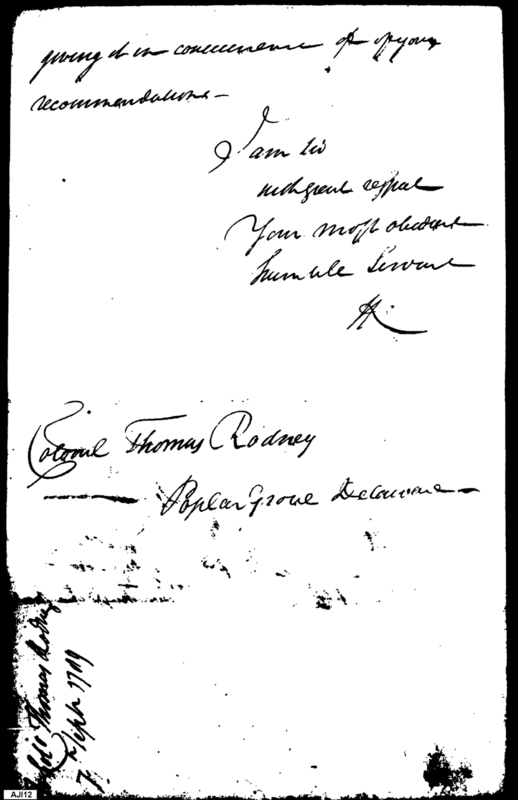 giving it in concurrence of of your
recommendations —
I am Sir
with great respect
Your most obedient
humble Servant
H
Colonel Thomas Rodney
Poplar Grove Delaware —
Colo Thomas Rodney
7 Septr 1789
AJI12